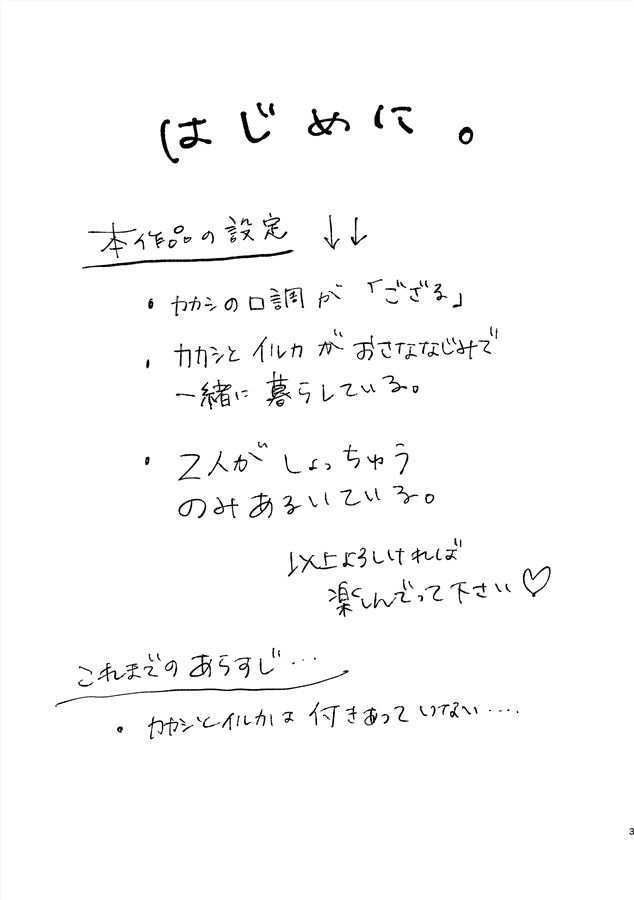 はじめに。
本作品の設定 ↓↓
・カカシの口調が「ござる」
・カカシとイルカがおさななじみで
一緒に暮らしている。
・2人がしょっちゅう
のみあるいている。
以上よろしければ
楽しんでって下さい♡
これまでのあらすじ…
・カカシとイルカは付きあっていない….
3